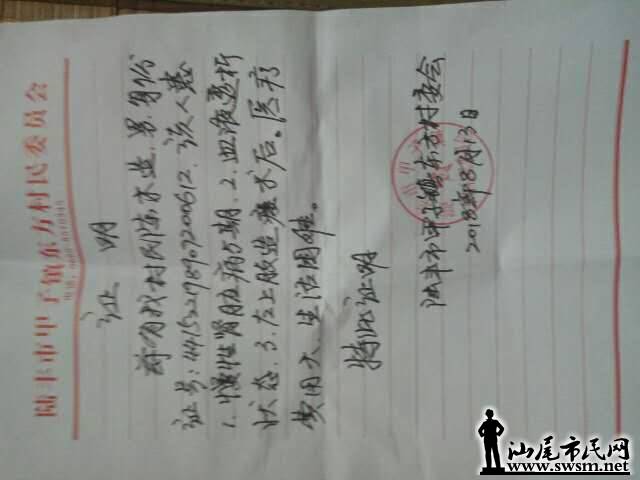 陆丰市甲子镇东方村民委员会
证 明
兹有我村民陈水业、男、身份
证号:441522198907200612、该人患
1.慢性肾脏病5期、2.血液透析
状态、3.左上肢造瘘术后。医疗
费用大、生活困难。
特此证明
陆丰市甲子镇东方村委会
2018年8月13日
汕尾市民网
www.swsm.net